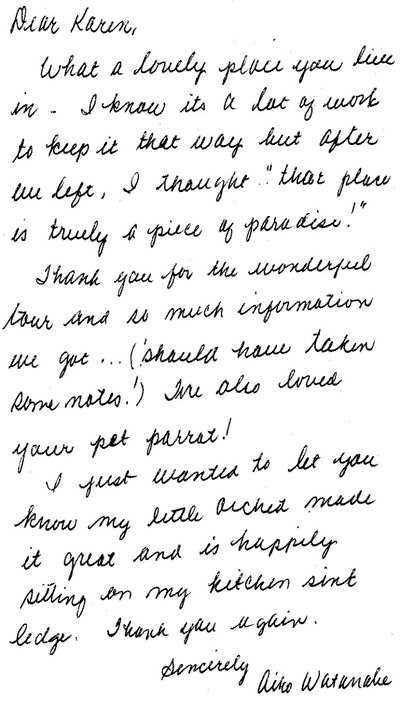 Dear Karen,
What a lovely place you live
in - I know its a lot of work
to keep it that way but after
we left, I thought "that place
is truely a piece of paradise!"
Thank you for the wonderful
tour and so much information
we got ... ('should have taken
some notes!') We also loved
your pet parrot!
I just wanted to let you
know my little orchid made
it great and is happily
sitting on my kitchen sink
ledge. Thank you again.
Sincerely
Aiko Watanabe